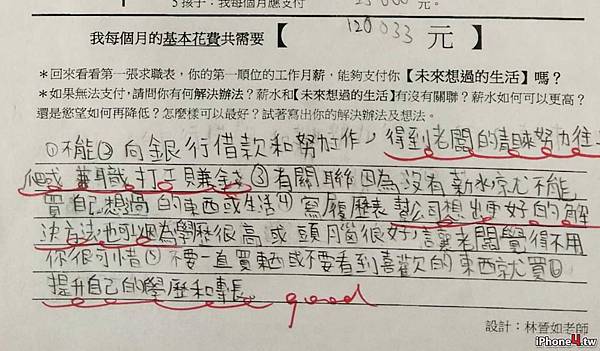 5 孩子：我每個月應支付 25000 元。
我每個月的基本花費共需要【 120033 元 】
＊回來看看第一張求職表，你的第一順位的工作月薪，能夠支付你【未來想過的生活】嗎？
＊如果無法支付，請問你有何解決辦法？薪水和【未來想過的生活】有沒有關聯？薪水如何可以更高？
還是慾望如何再降低？怎麼樣可以最好？試著寫出你的解決辦法及想法。
①不能②向銀行借款和努力工作，得到老闆的青睞努力往上
爬或兼職打工賺錢③有關聯因為沒有薪水就不能
買自己想過的東西或生活④寫履歷表幫公司想出更好的解
決方法也可以因為學歷很高或頭腦很好，讓老闆覺得不用
你很可惜⑤不要一直買東西或不要看到喜歡的東西就買⑥
提升自己的學歷和專長。 good
設計：林晉如老師
iPhone4.tw